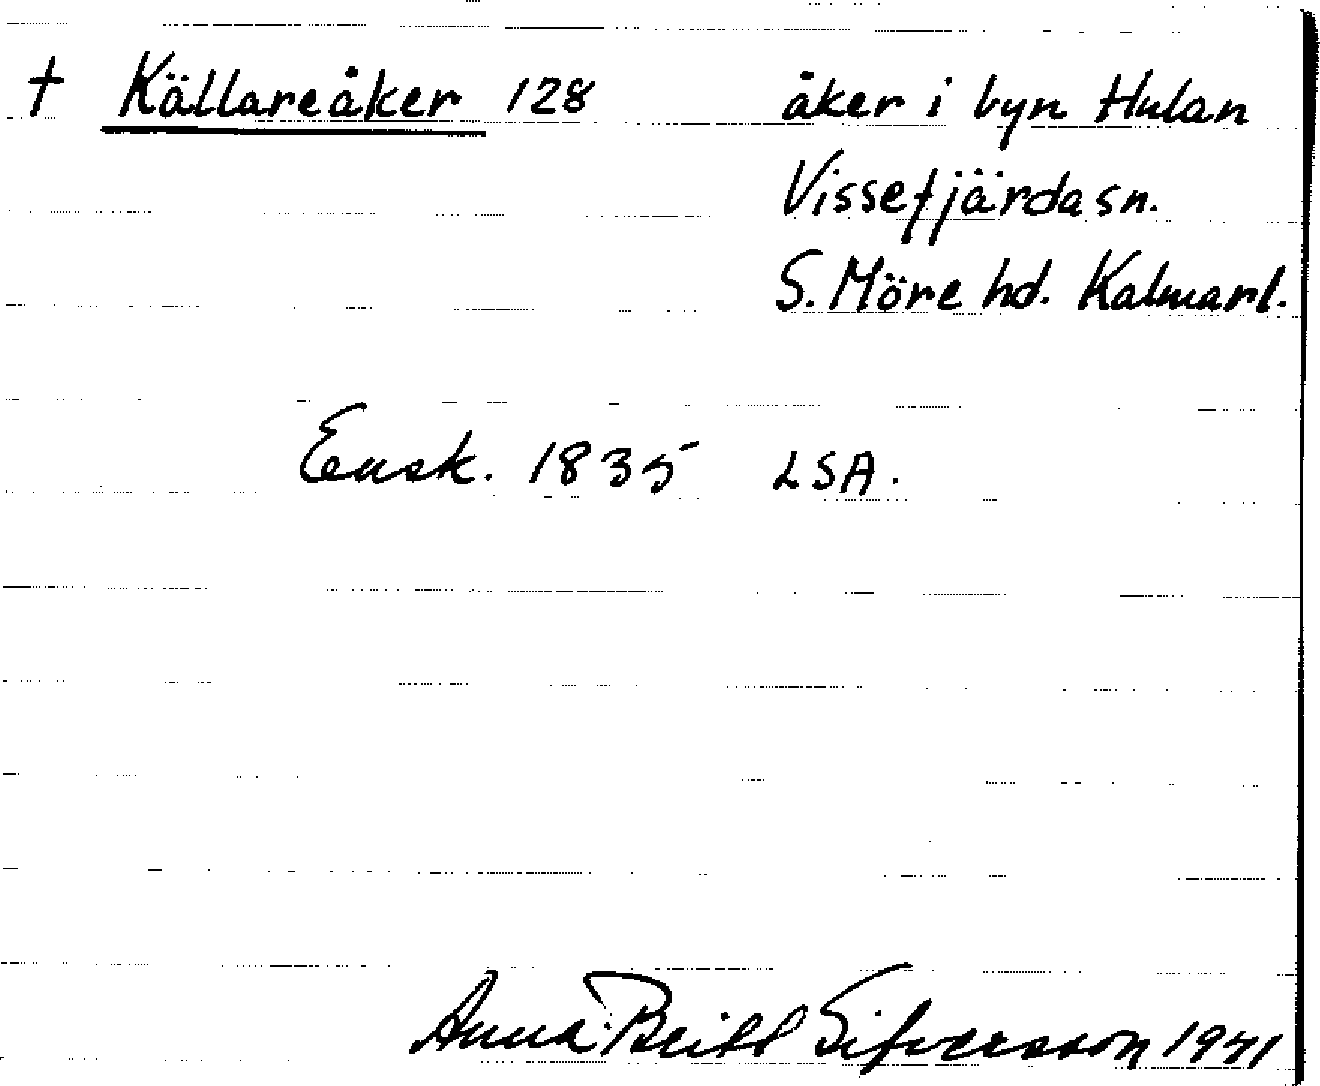 † Källareåker 128 åker i byn Hulan
Vissefjärda sn.
S. Möre hd. Kalmarl.
Ensk. 1835 LSA.
Anna-Britt Sifversson 1941